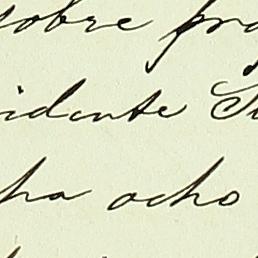 sobre pro
idente S
ha ocho